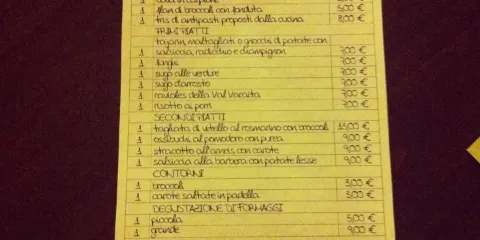 1 flan di broccoli con fonduta 5,00 €
1 tris di antipasti proposti dalla cucina 8,00 €
PRIMI PIATTI
tajarin, maltagliati o gnocchi di patate con
1 salsiccia, radicchio e champignon 7,00 €
1 funghi 7,00 €
1 sugo alle verdure 7,00 €
1 sugo d'arrosto 7,00 €
1 ravioles della Val Varaita 7,00 €
1 risotto ai porri 7,00 €
SECONDI PIATTI
1 tagliata di vitello al rosmarino con broccoli 13,00 €
1 ossibuchi al pomodoro con purea 9,00 €
1 stracotto all'arneis con carote 9,00 €
1 salsiccia alla barbera con patate lesse 9,00 €
CONTORNI
1 broccoli 3,00 €
1 carote saltate in padella 3,00 €
DEGUSTAZIONE DI FORMAGGI
1 piccola 5,00 €
1 grande 9,00 €